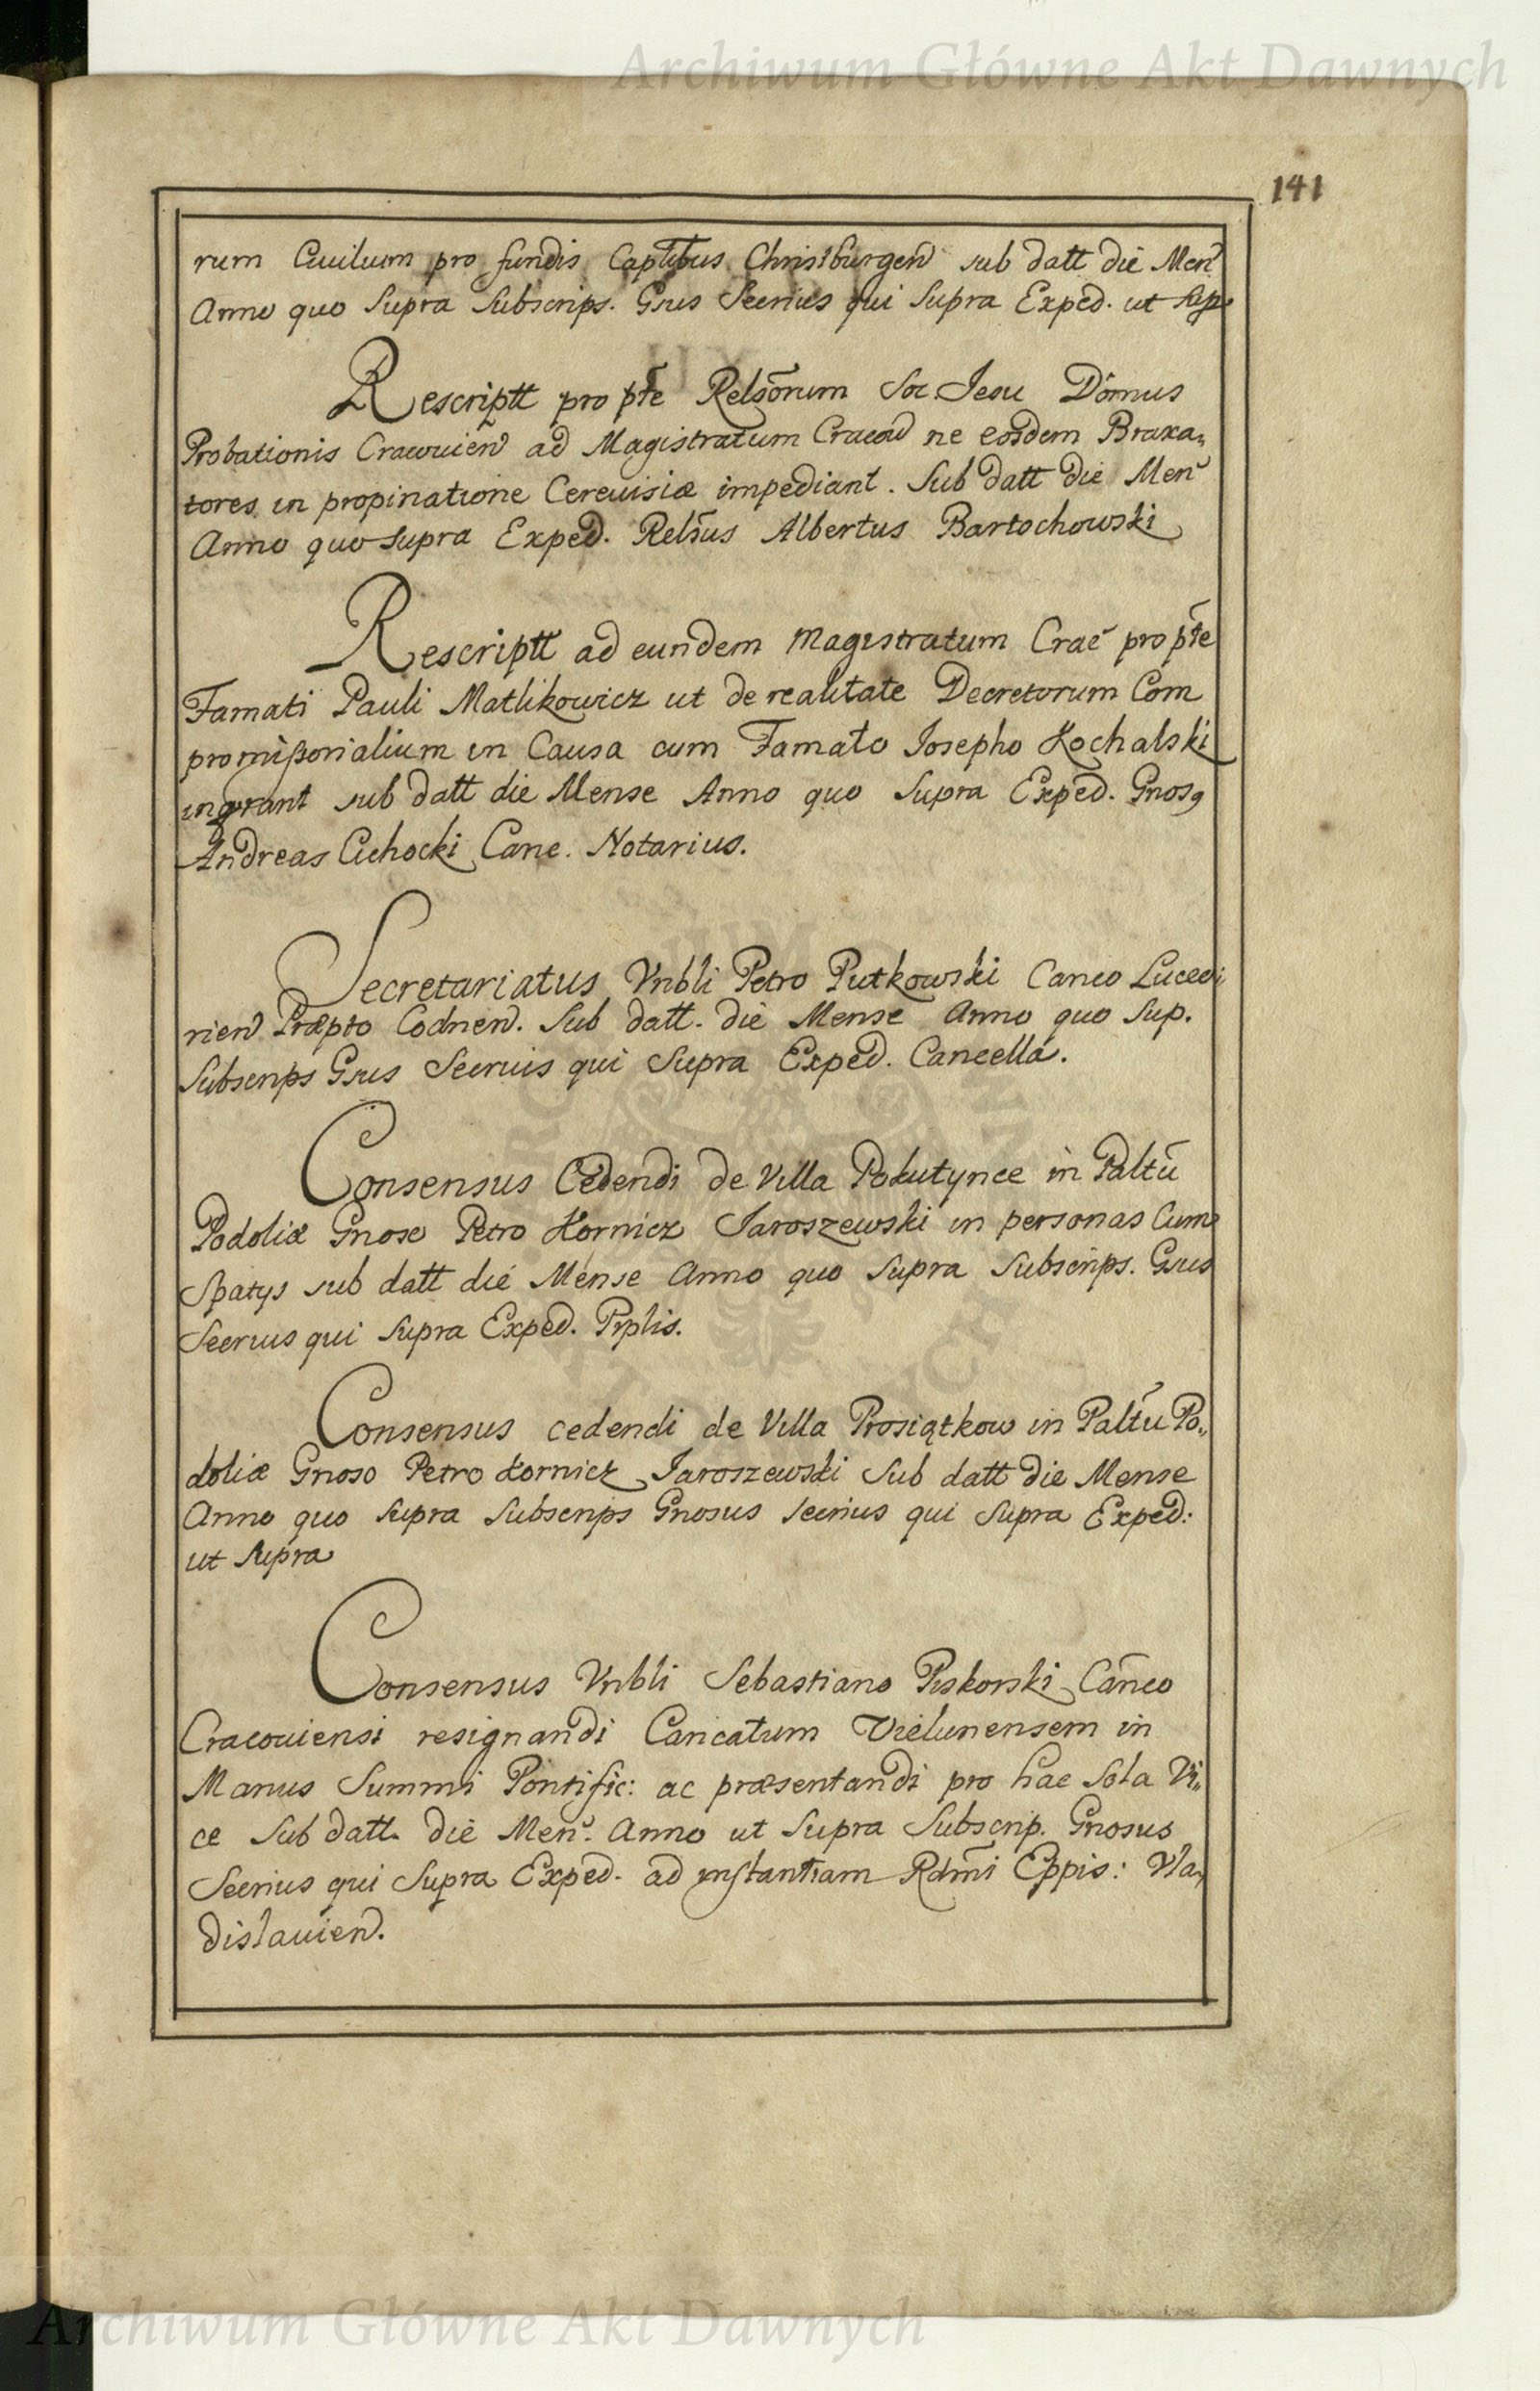 Archiwum Główne Akt Dawnych
141
rum Ciuilium pro fundis Captibus Christburgen sub datt die Men
Anno quo Supra Subscrips. Gsus Secrius qui Supra Exped. ut Sup
Rescriptt pro pte Relsorum Soc Jesu Domus
Probationis Cracouien ad Magistratum Cracow ne eosdem Braxa„
tores in propinatione Cereuisiæ impediant. Sub datt die Men
Anno quo supra Exped. Relsus Albertus Bartochowski
Rescriptt ad eundem Magistratum Crac pro pte
Famati Pauli Matlikowicz ut de realitate Decretorum Com
promißorialium in Causa cum Famato Iosepho Kochalski
sub datt die Mense Anno quo Supra Exped. Gnosq
Andreas Cichocki Canc. Notarius.
Secretariatus Vnbli Petro Putkowski Canco Luceo
rien Præpto Codnen. Sub datt. die Mense Anno quo Sup.
Subscrips Gsus Secrius qui Supra Exped. Cancella.
Consensus Cedendi de Villa Pokutynce in Paltu
Podoliæ Gnoso Petro Kornicz Jaroszewski in personas Cum
Spatys sub datt die Mense Anno quo Supra Subscrips. Gsus
Secrius qui Supra Exped. Prplis.
Consensus cedendi de Villa Prosiątkow in Paltu Po„
doliæ Gnoso Petro Kornicz Jaroszewski Sub datt die Mense
Anno quo Supra Subscrips Gnosus Secrius qui Supra Exped:
ut Supra
Consensus Vnbli Sebastiano Piskorski Canco
Cracouiensi resignandi Canicatum Vielunensem in
Manus Summi Pontific: ac præsentandi pro hac Sola Vi„
ce Sub datt. die Men. Anno ut Supra Subscrip. Gnosus
Secrius qui Supra Exped. ad instantiam Rdmi Eppis: Vla„
dislauien.
Archiwum Główne Akt Dawnych